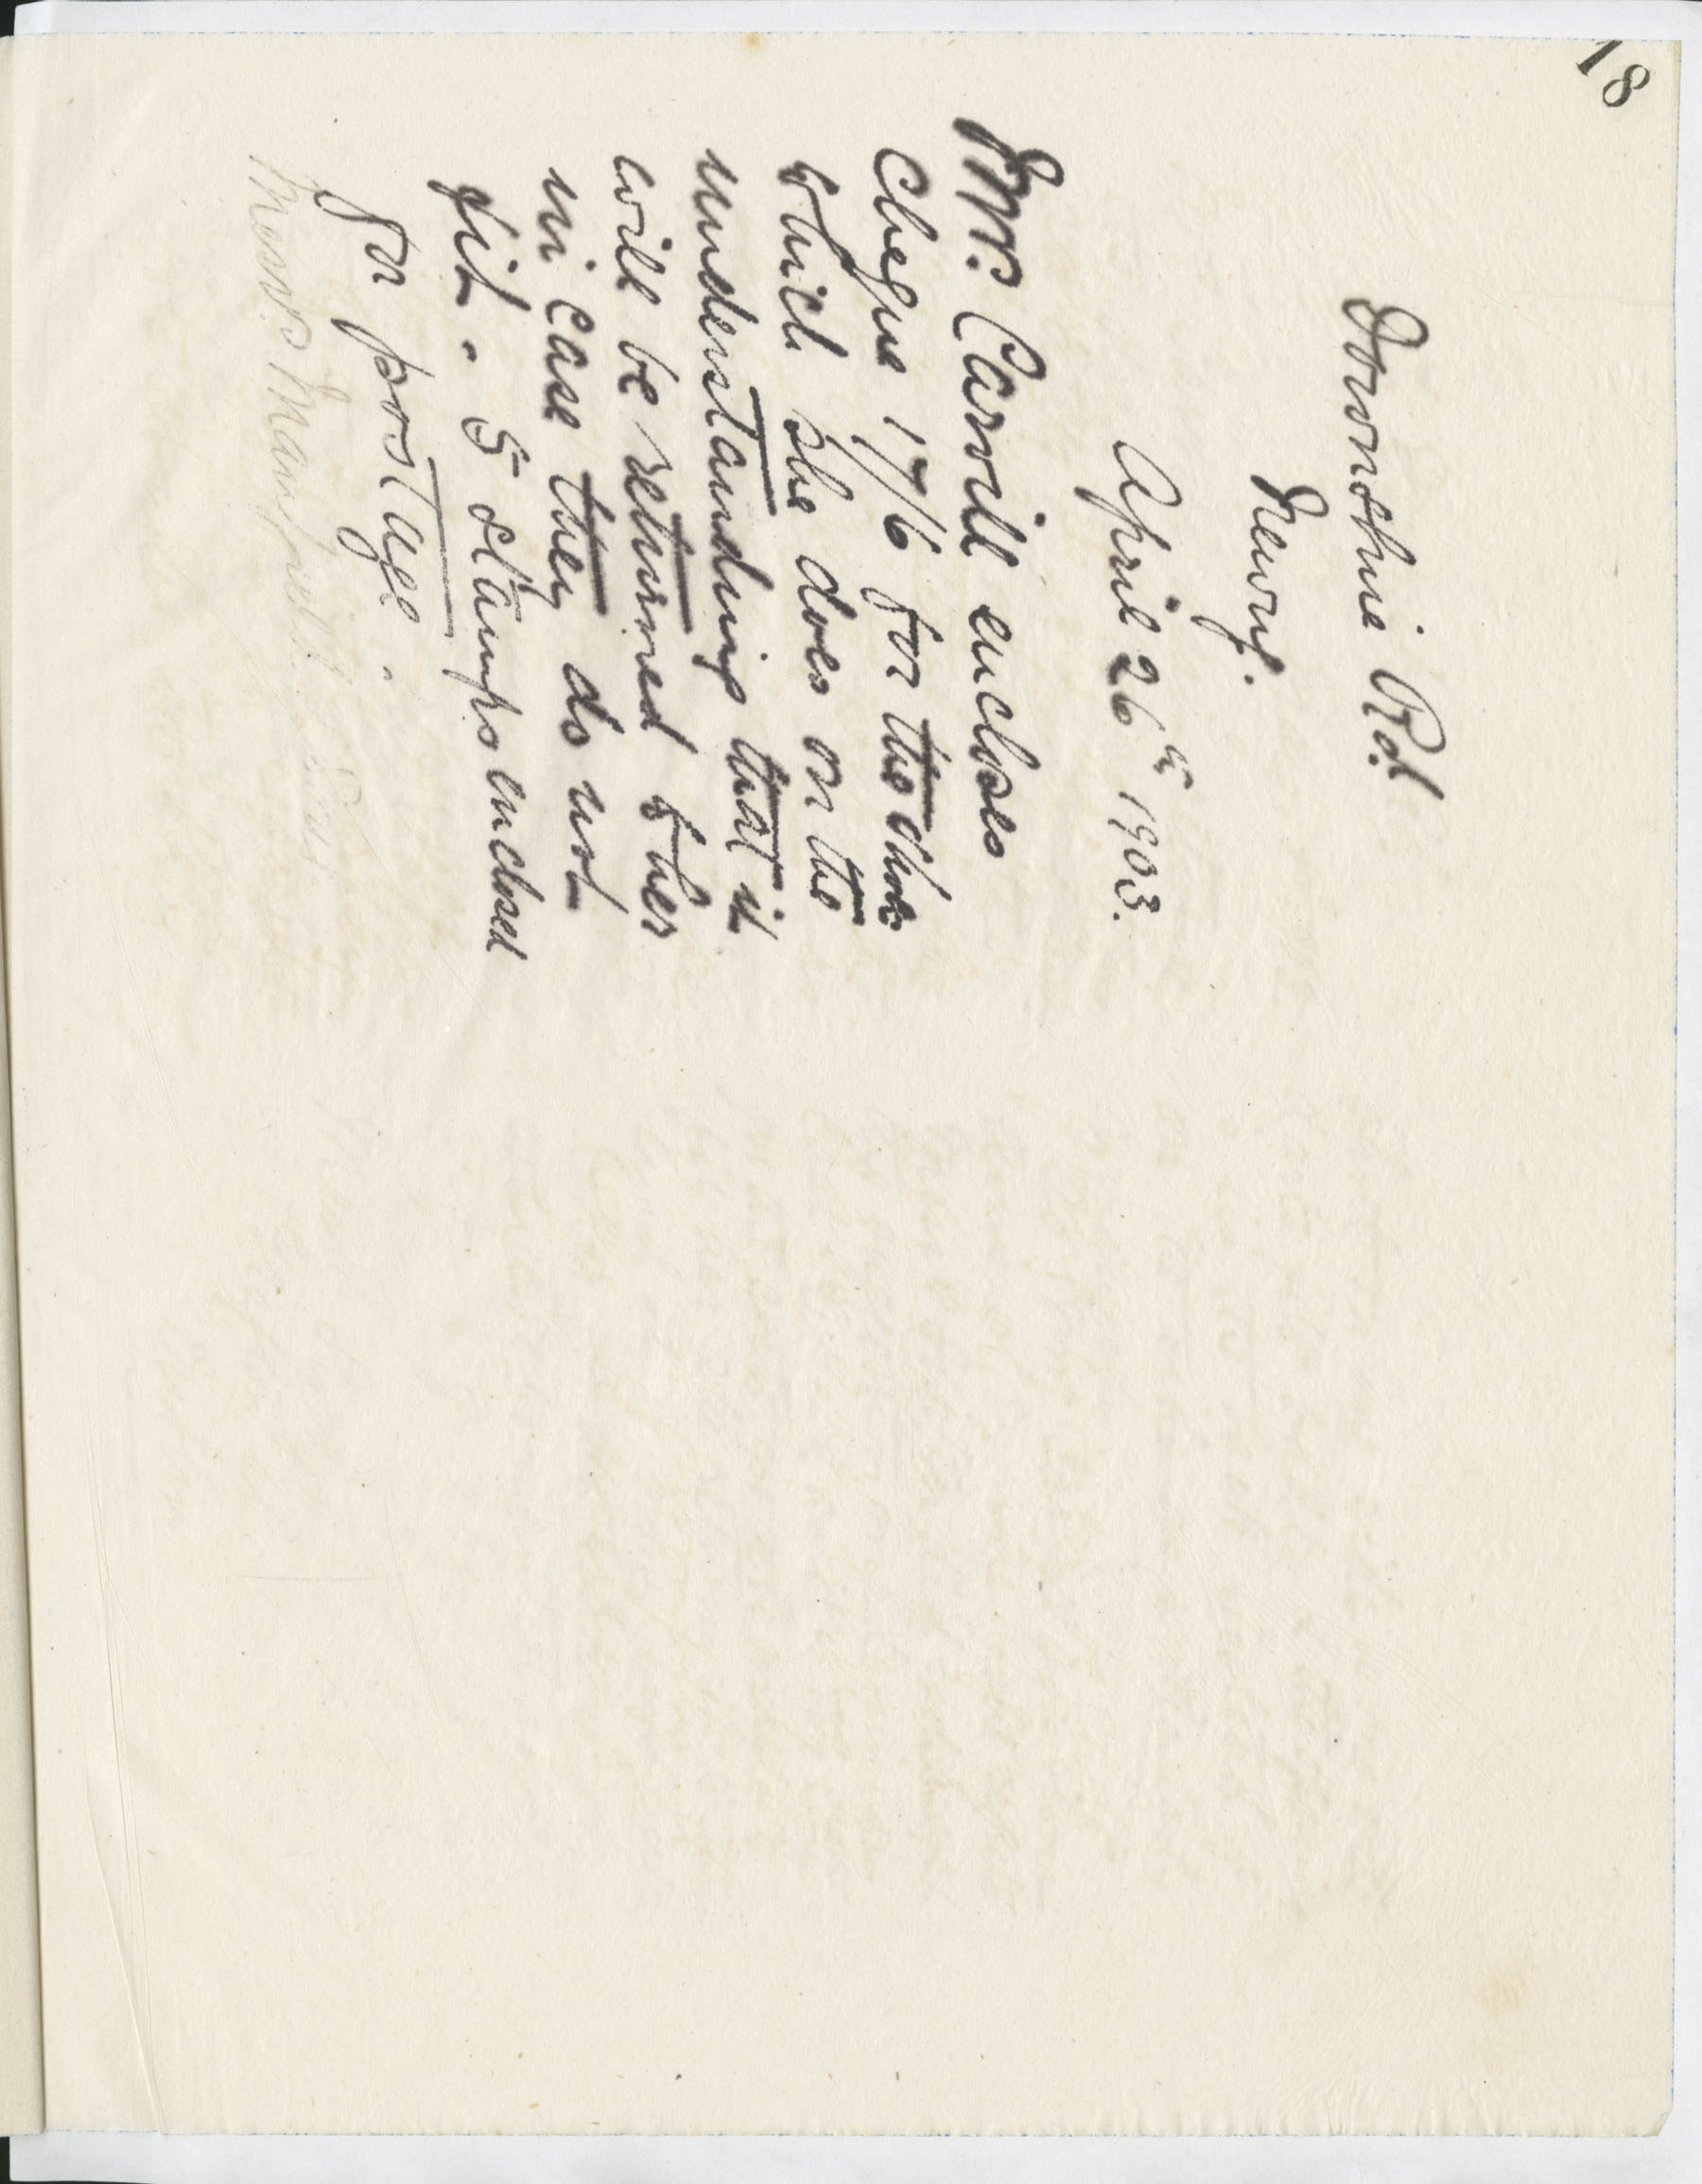 18
Downshire Rd
Newry.
April 26th 1903.
Mrs. Carvill encloses
Cheque 17/6 for the
which she does on the
understanding that it
will be returned to her
in case they do not
fit. 5 stamps enclosed
for postage.
Messrs